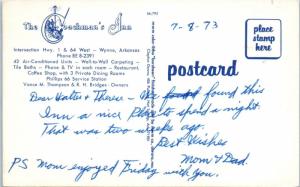 The Coachman's Inn
Intersection Hwy. 1 & 64 West - Wynne, Arkansas
Phone BE 8-2391
42 Air-Conditioned Units - Wall-to-Wall Carpeting -
Tile Baths - Phone & TV in each room - Restaurant,
Coffee Shop, with 3 Private Dining Rooms
Phillips 66 Service Station
Vance M. Thompson & R. H. Bridges - Owners
7-8-73
place
stamp
here
postcard
Dear Walter & Therese - We found this
Inn a nice place to spend a night.
That was two weeks ago.
Best Wishes
Mom & Dad.
PS Mom enjoyed Friday with you.